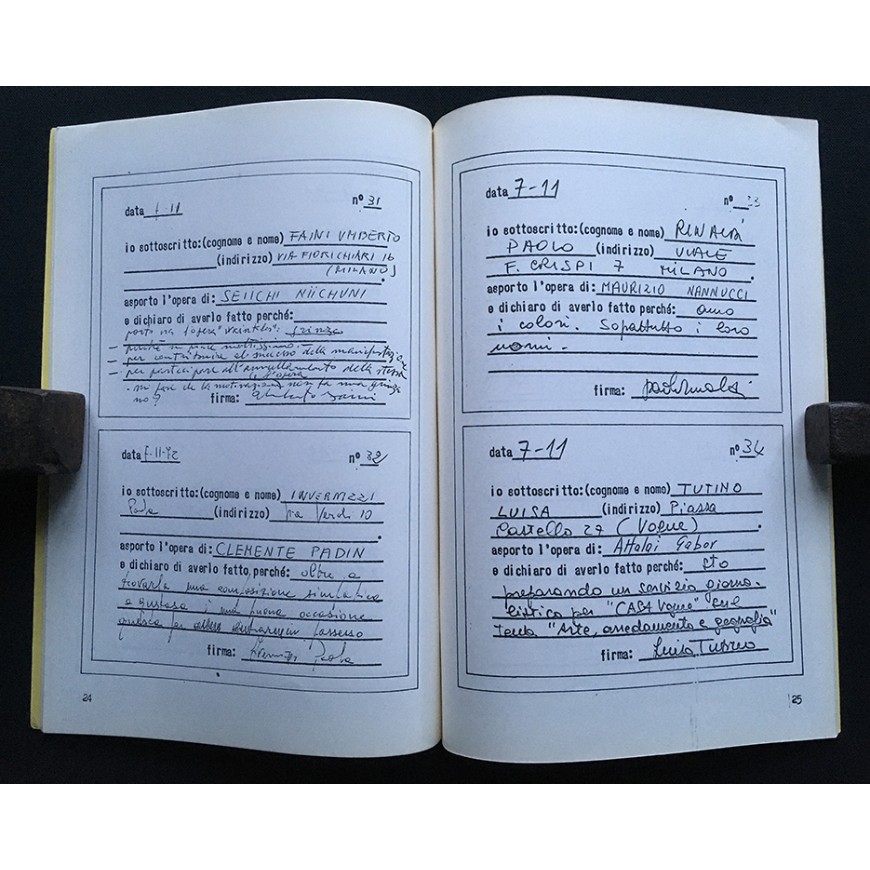 data 7-11 nº 31
io sottoscritto:(cognome e nome) FAINI UMBERTO
(indirizzo) VIA FIORICHIARI 16
(MILANO)
asporto l'opera di: SEIICHI NIICHUNI
e dichiaro di averlo fatto perché:
porto via l'opera
perché mi piace moltissimo
— per contribuire al successo della manifestazione
— per partecipare all'annullamento della stessa
l'opera
. mi pare che la motivazione non fa una grinza
no?
firma: Umberto Faini
data 7-11-72 nº 32
io sottoscritto:(cognome e nome) INVERNIZZI
Paola (indirizzo) Via Verdi 10
asporto l'opera di: CLEMENTE PADIN
e dichiaro di averlo fatto perché: oltre a
trovarla una composizione simpatica
e gustosa è una buona occasione
questa per possesso
firma: Paola
24
data 7-11 nº 33
io sottoscritto:(cognome e nome) RINALDI
PAOLO (indirizzo) VIALE
F. CRISPI 7 MILANO
asporto l'opera di: MAURIZIO NANNUCCI
e dichiaro di averlo fatto perché: amo
i colori. Sopattutto i loro
nomi.
firma: paolo rinaldi
data 7-11 nº 34
io sottoscritto:(cognome e nome) TUTINO
LUISA (indirizzo) Piassa
Castello 27 (Vogue)
asporto l'opera di: Attalai Gabor
e dichiaro di averlo fatto perché: sto
preparando un servizio giorna-
listico per "CASA VOGUE" sul
tema "Arte, arredamento e
firma: Luisa Tutino
25